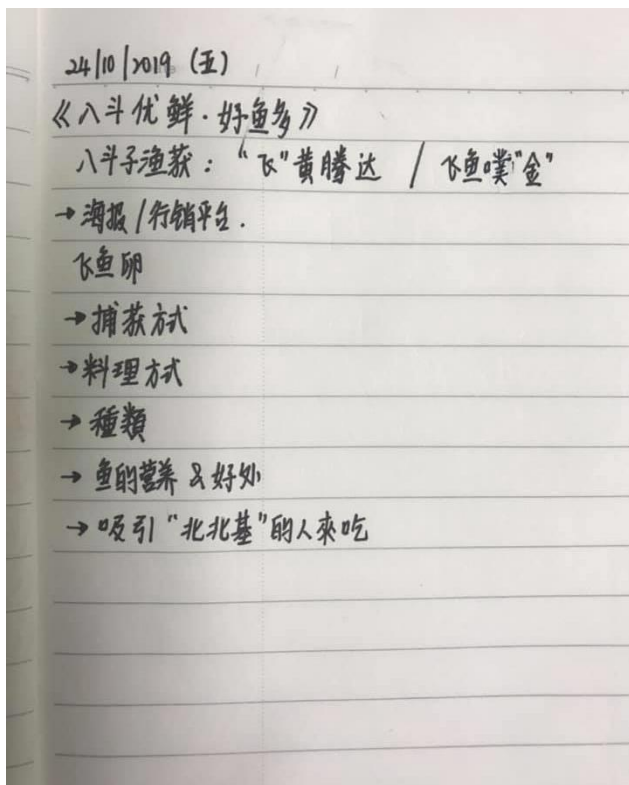 24/10/2019 (五)
《八斗优鲜·好鱼多》
八斗子渔获："飞"黄腾达 / 飞鱼噗"金"
→海报/行销平台.
飞鱼卵
→捕获方式
→料理方式
→種類
→鱼的营养&好处
→吸引"北北基"的人來吃